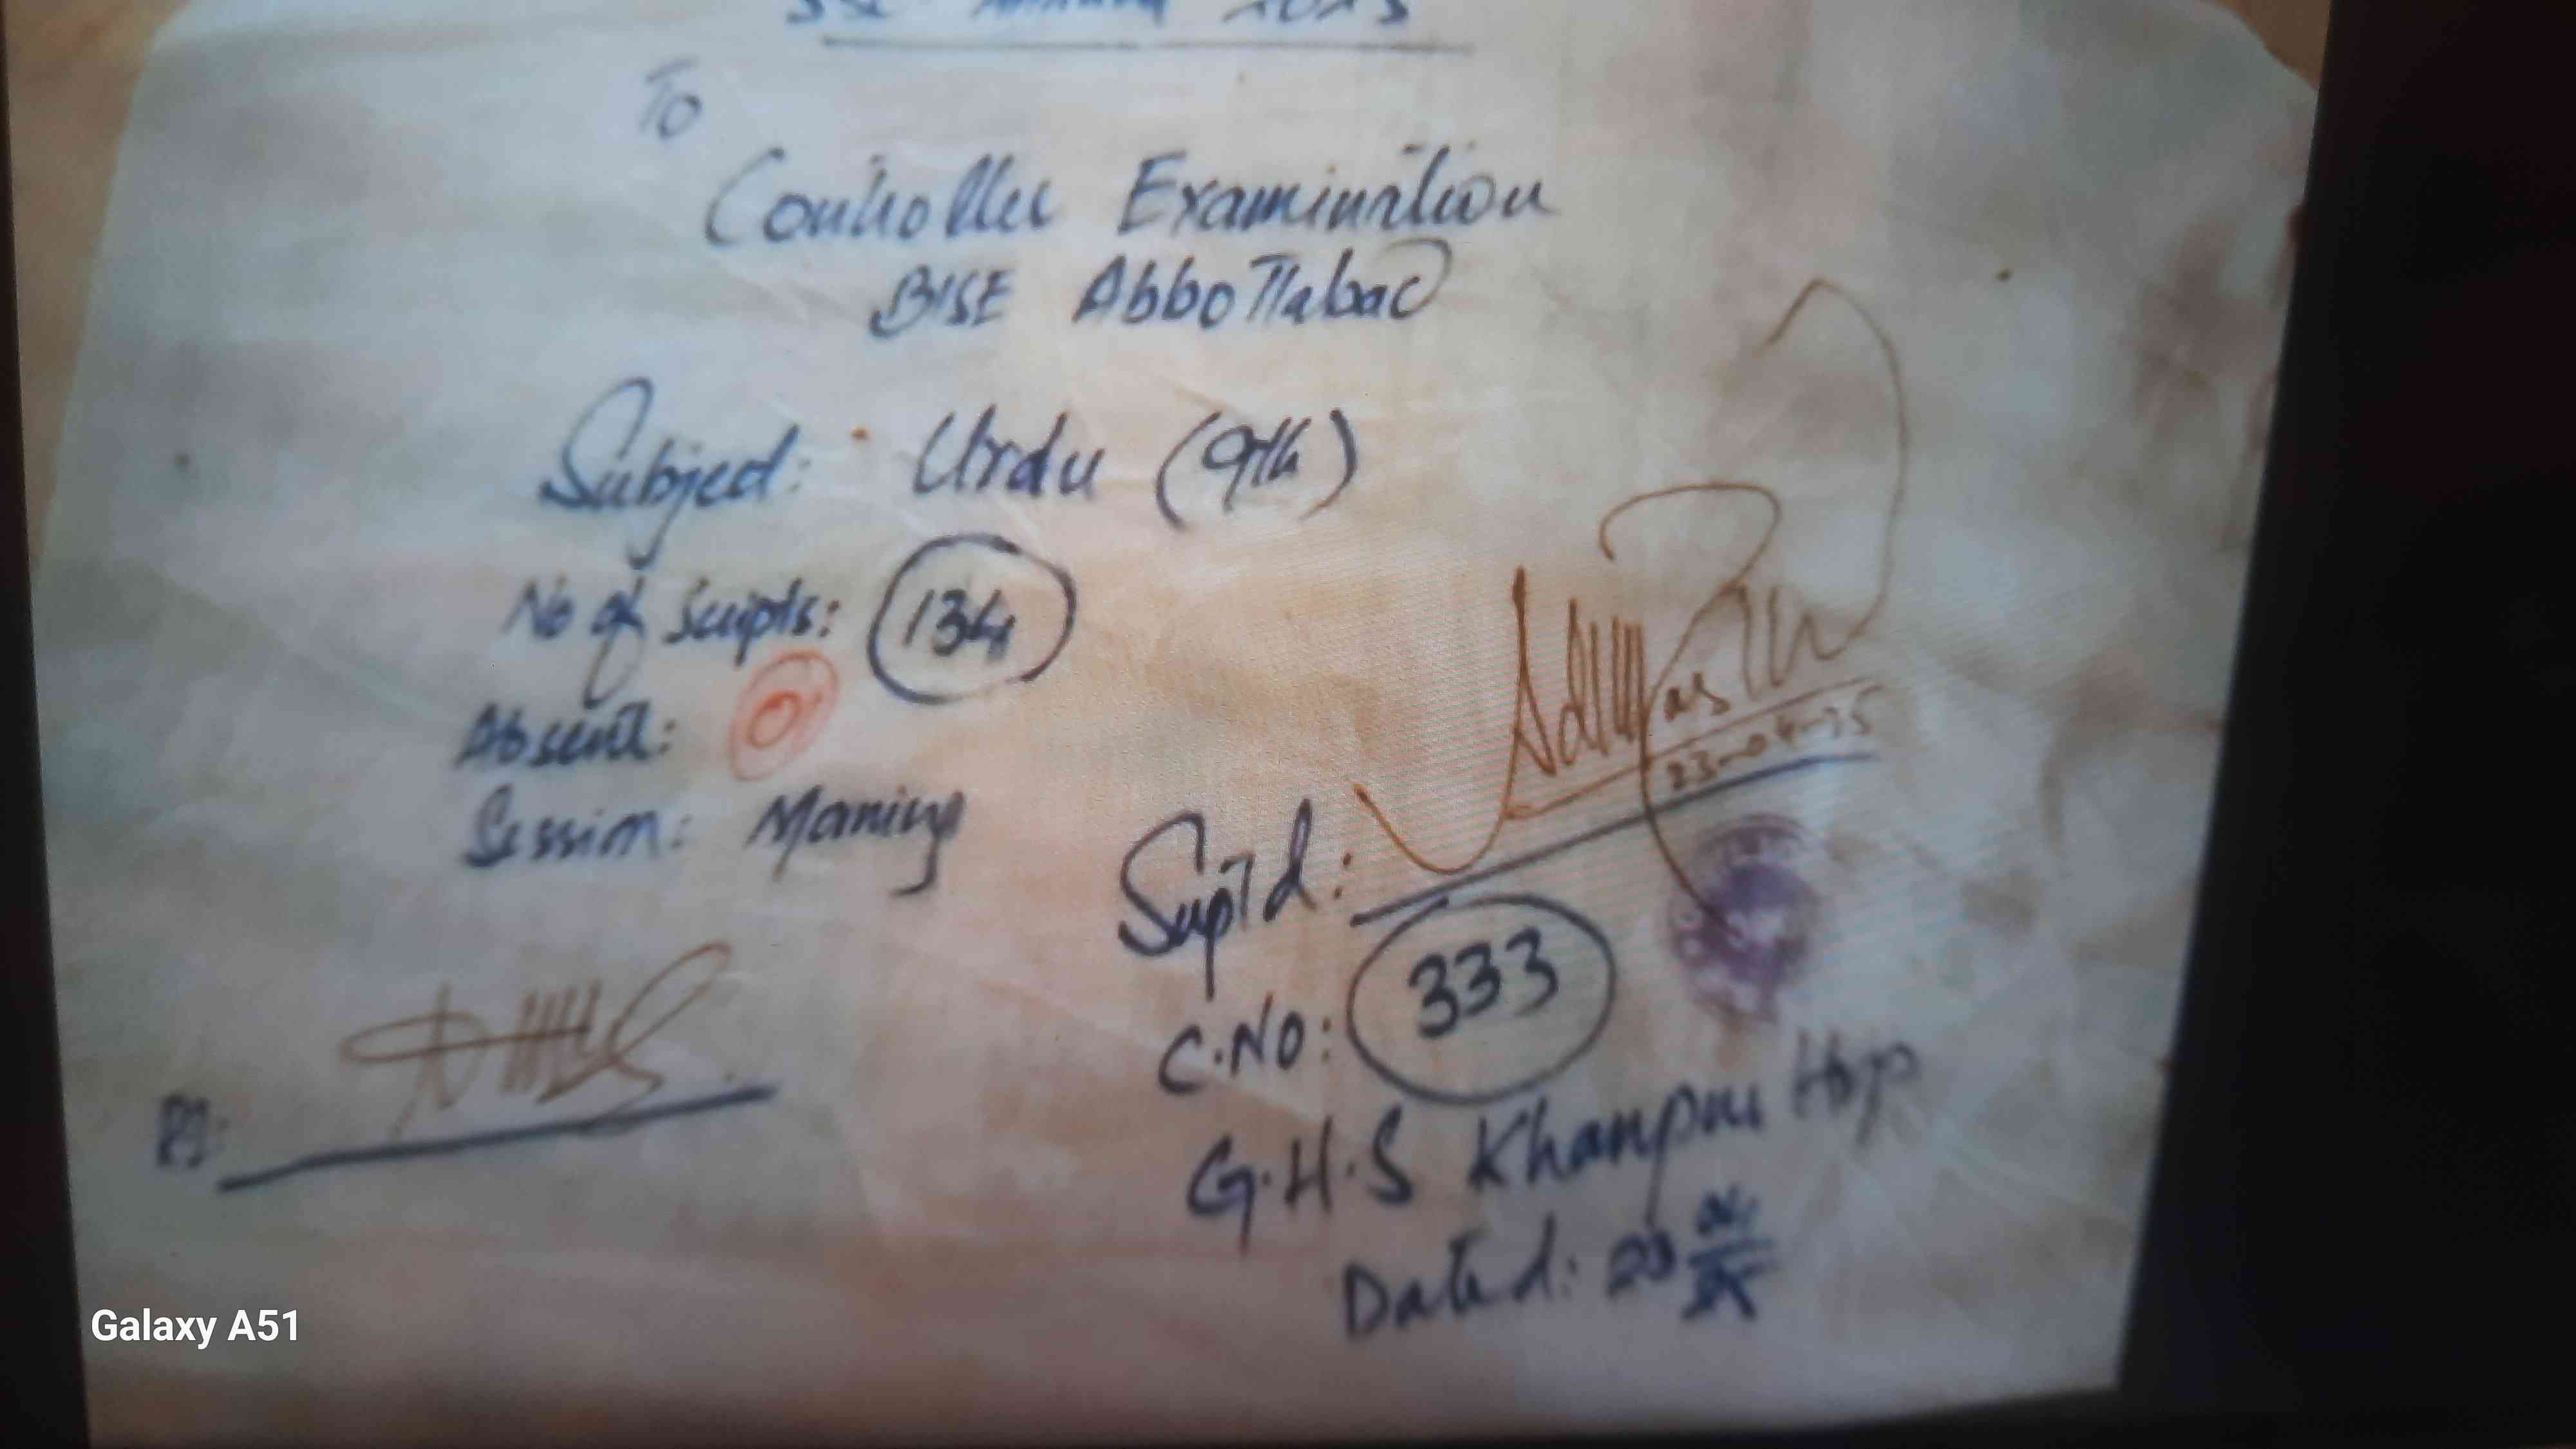 To
Controller Examination
BISE Abbottabad
Subject: Urdu (9th)
No of Scripts: 134
Absent: 0
Session: Morning
23-04-25
Suptd:
C.No: 333
G.H.S Khanpur Hrp
Dated: 23
Galaxy A51